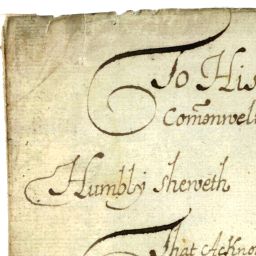 To His
Com̃onwel
Humbly sheweth
That Ackno